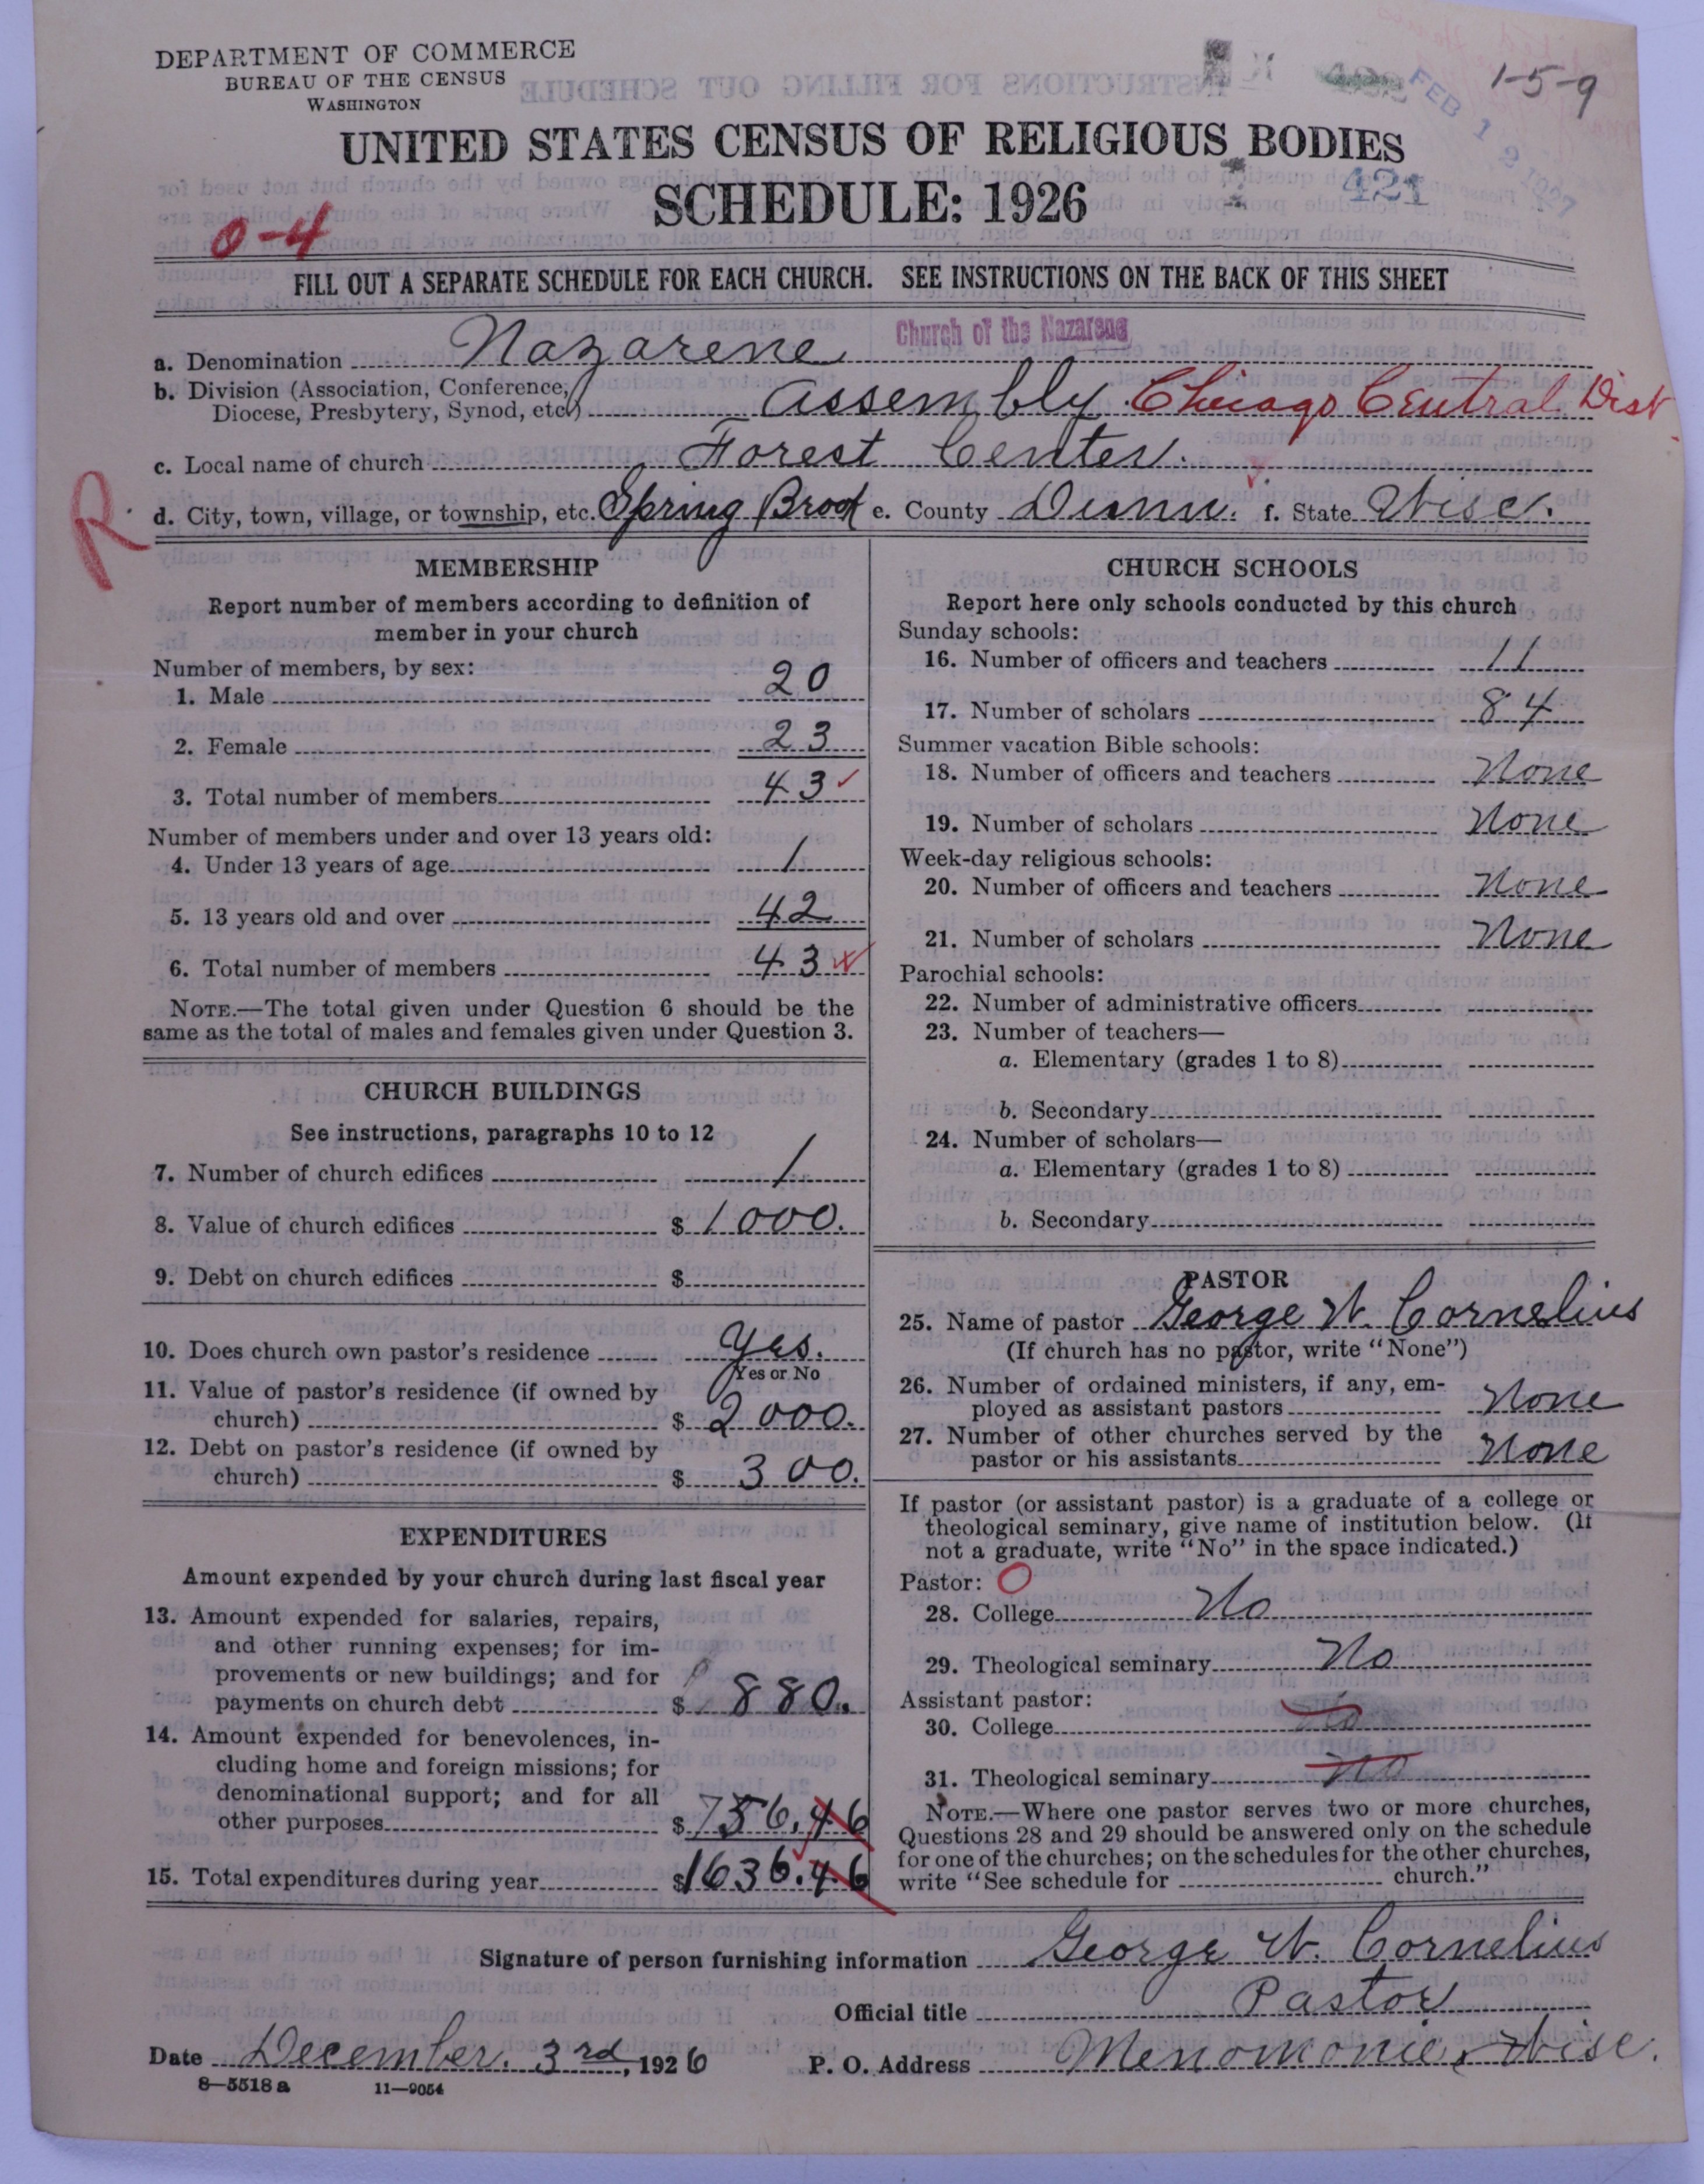 DEPARTMENT OF COMMERCE
BUREAU OF THE CENSUS
WASHINGTON
1-5-9
FEB 1 9 1927
UNITED STATES CENSUS OF RELIGIOUS BODIES
SCHEDULE: 1926
421
0-4
FILL OUT A SEPARATE SCHEDULE FOR EACH CHURCH. SEE INSTRUCTIONS ON THE BACK OF THIS SHEET
Church of the Nazarene
a. Denomination Nazarene
b. Division (Association, Conference, Diocese, Presbytery, Synod, etc.) Assembly Chicago Central Dist
c. Local name of church Forest Center.
R
d. City, town, village, or township, etc. Spring Brook e. County Dunn. f. State Wisc.
MEMBERSHIP
Report number of members according to definition of
member in your church
Number of members, by sex:
1. Male 20
2. Female 23
3. Total number of members 43 ✓
Number of members under and over 13 years old:
4. Under 13 years of age 1
5. 13 years old and over 42
6. Total number of members 43
NOTE.—The total given under Question 6 should be the
same as the total of males and females given under Question 3.
CHURCH BUILDINGS
See instructions, paragraphs 10 to 12
7. Number of church edifices 1
8. Value of church edifices $ 1000.
9. Debt on church edifices $
10. Does church own pastor's residence Yes.
Yes or No
11. Value of pastor's residence (if owned by
church) $ 2000.
12. Debt on pastor's residence (if owned by
church) $ 300.
EXPENDITURES
Amount expended by your church during last fiscal year
13. Amount expended for salaries, repairs,
and other running expenses; for im-
provements or new buildings; and for
payments on church debt $ 880.
14. Amount expended for benevolences, in-
cluding home and foreign missions; for
denominational support; and for all
other purposes $ 756.46
15. Total expenditures during year $ 1636.46
CHURCH SCHOOLS
Report here only schools conducted by this church
Sunday schools:
16. Number of officers and teachers 11
17. Number of scholars 84
Summer vacation Bible schools:
18. Number of officers and teachers None
19. Number of scholars None
Week-day religious schools:
20. Number of officers and teachers None
21. Number of scholars None
Parochial schools:
22. Number of administrative officers
23. Number of teachers—
a. Elementary (grades 1 to 8)
b. Secondary
24. Number of scholars—
a. Elementary (grades 1 to 8)
b. Secondary
PASTOR
25. Name of pastor George W. Cornelius
(If church has no pastor, write "None")
26. Number of ordained ministers, if any, em-
ployed as assistant pastors None
27. Number of other churches served by the
pastor or his assistants None
If pastor (or assistant pastor) is a graduate of a college or
theological seminary, give name of institution below. (If
not a graduate, write "No" in the space indicated.)
Pastor: O
28. College No
29. Theological seminary No
Assistant pastor:
30. College No
31. Theological seminary No
NOTE.—Where one pastor serves two or more churches,
Questions 28 and 29 should be answered only on the schedule
for one of the churches; on the schedules for the other churches,
write "See schedule for church."
Signature of person furnishing information George W. Cornelius
Official title Pastor
Date December. 3rd, 1926 P. O. Address Menomonie, Wisc.
8-5518 a 11-9054